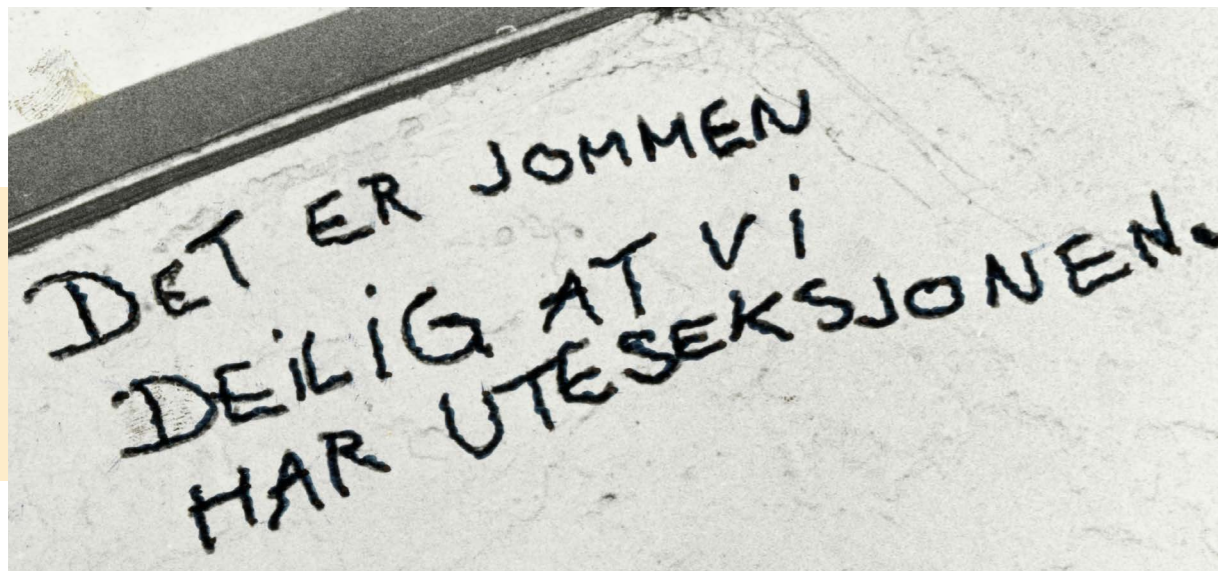 DET ER JOMMEN
DEILIG AT VI
HAR UTESEKSJONEN.